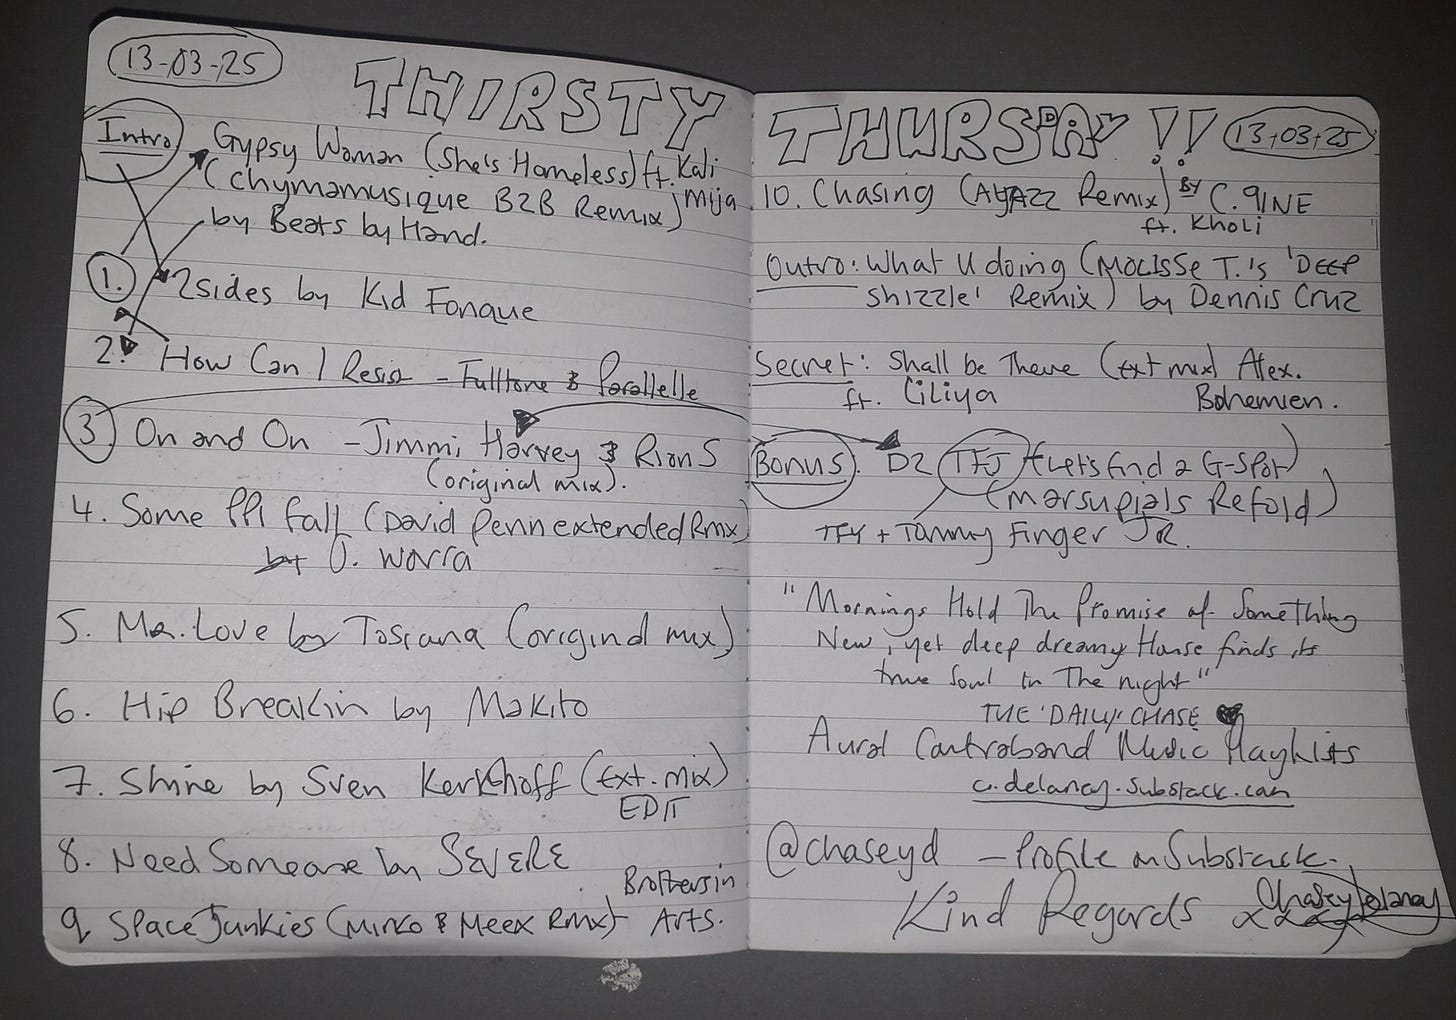 13-03-25
THIRSTY
Intro
Gypsy Woman (She's Homeless) ft. Kali
Mija
(Chymamusique B2B Remix)
by Beats by Hand.
1.
2sides by Kid Fonque
2.
How Can I Resist - Fulltone & Parallelle
3. On and On - Jimmi Harvey & Rion S
(original mix).
4. Some fall (David Penn extended Rmx)
by O. Worra
5. Mr. Love by Tosiana (original mix)
6. Hip Breakin by Makito
7. Shine by Sven Kerkhoff (Ext. mix)
EDIT
8. Need Someone by SEVERE
Brothers in
9. Space Junkies (Mirko & Meex Rmx) Arts.
THURSDAY !!
13-03-25
10. Chasing (AYAZZ Remix) BY C.9INE
ft. Kholi
Outro: What U doing (Mousse T.'s 'DEEP
Shizzle' Remix) by Dennis Cruz
Secret: Shall be There (Ext mix) Alex.
ft. Liliya Bohemien.
Bonus. D2 TFJ (Lets find a G-Spot)
(Marsupials Refold)
TFY + Tommy Finger JR.
"Mornings Hold The Promise of Something
New, yet deep dreamy House finds its
true Soul in The night"
THE 'DAILY' CHASE
Aural Contraband Music Playlists
c.delaney.substack.com
@chaseyd - Profile on Substack.
Kind Regards Chasey Delaney